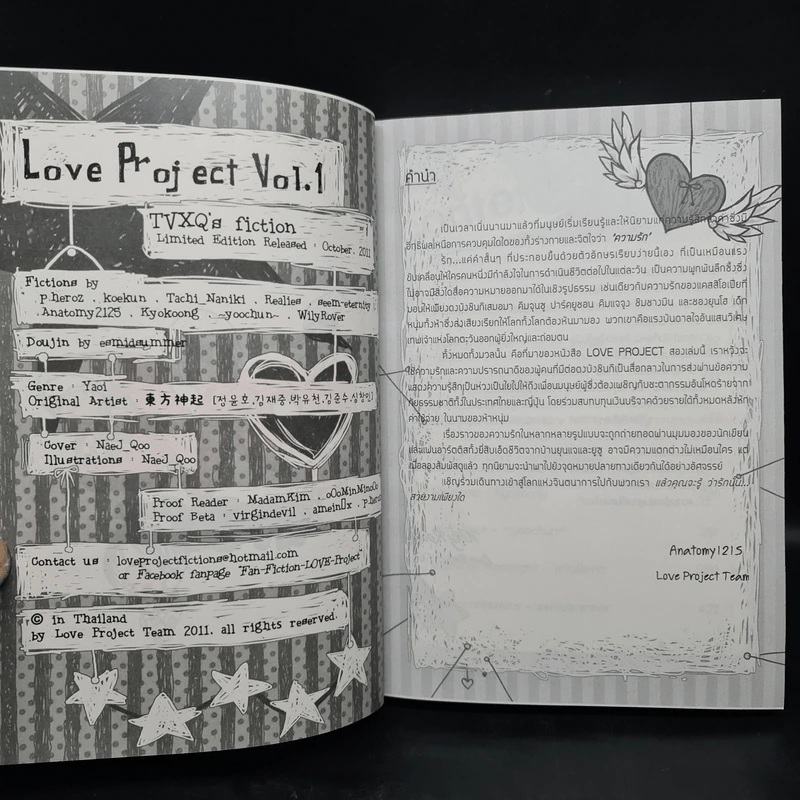 Love Project Vol.1
TVXQ's fiction
Limited Edition Released : October, 2011
Fictions by
p.heroz . koekun . Tachi_Naniki . Realies . seem-eternity
Anatomy1215 . Kyokoong . ~yoochun~ . WilyRover
Doujin by esmidsummer
Genre : Yaoi
Original Artist : 東方神起 [정윤호.김재중.박유천.김준수.심창민]
Cover : NaeJ_Qoo
Illustrations : NaeJ_Qoo
Proof Reader : MadamKim . oOoMinMinoOo
Proof Beta : virgindevil . amein0x . p.heroz
Contact us : loveprojectfictions@hotmail.com
or Facebook fanpage "Fan-Fiction-LOVE-Project"
© in Thailand
by Love Project Team 2011. all rights reserved.
คำนำ
เป็นเวลาเนิ่นนานมาแล้วที่มนุษย์เริ่มเรียนรู้และให้นิยามแก่ความรู้สึก
อิทธิพลเหนือการควบคุมใดใดของทั้งร่างกายและจิตใจว่า "ความรัก"
รัก...แค่คำสั้นๆ ที่ประกอบขึ้นด้วยตัวอักษรเรียบง่ายนี้เอง ที่เป็นเหมือนแรง
ขับเคลื่อนให้ใครคนหนึ่งมีกำลังใจในการดำเนินชีวิตต่อไปในแต่ละวัน เป็นความผูกพันลึกซึ้งซึ่ง
ไม่อาจมีสิ่งใดสื่อความหมายออกมาได้ในเชิงรูปธรรม เช่นเดียวกับความรักของแคสสิโอเปียที่
มอบให้เพียงดงบังชินกิเสมอมา คิมจุนซู ปาร์คยูชอน คิมแจจุง ชิมชางมิน และชองยุนโฮ เด็ก
หนุ่มทั้งห้าซึ่งส่งเสียงเรียกให้โลกทั้งโลกต้องหันมามอง พวกเขาคือแรงบันดาลใจอันแสนวิเศษ
เทพเจ้าแห่งโลกตะวันออกผู้ยิ่งใหญ่และถ่อมตน
ทั้งหมดทั้งมวลนั้น คือที่มาของหนังสือ LOVE PROJECT สองเล่มนี้ เราหวังจะ
ใช้ความรักและความปรารถนาดีของผู้คนที่มีต่อดงบังชินกิเป็นสื่อกลางในการส่งผ่านข้อความ
แสดงความรู้สึกเป็นห่วงเป็นใยไปให้ถึงเพื่อนมนุษย์ผู้ซึ่งต้องเผชิญกับชะตากรรมอันโหดร้ายจาก
ภัยธรรมชาติทั้งในประเทศไทยและญี่ปุ่น โดยร่วมสมทบทุนเงินบริจาคด้วยรายได้ทั้งหมดหลังหัก
ค่าใช้จ่าย ในนามของห้าหนุ่ม
เรื่องราวของความรักในหลากหลายรูปแบบจะถูกถ่ายทอดผ่านมุมมองของนักเขียน
และแฟนอาร์ตติสทั้งยี่สิบเอ็ดชีวิตจากบ้านยุนแจและยูซู อาจมีความแตกต่างไม่เหมือนใคร แต่
เมื่อลองสัมผัสดูแล้ว ทุกนิยามจะนำพาไปยังจุดหมายปลายทางเดียวกันได้อย่างอัศจรรย์
เชิญร่วมเดินทางเข้าสู่โลกแห่งจินตนาการไปกับพวกเรา แล้วคุณจะรู้ ว่ารักนั้น...
สวยงามเพียงใด
Anatomy1215
Love Project Team